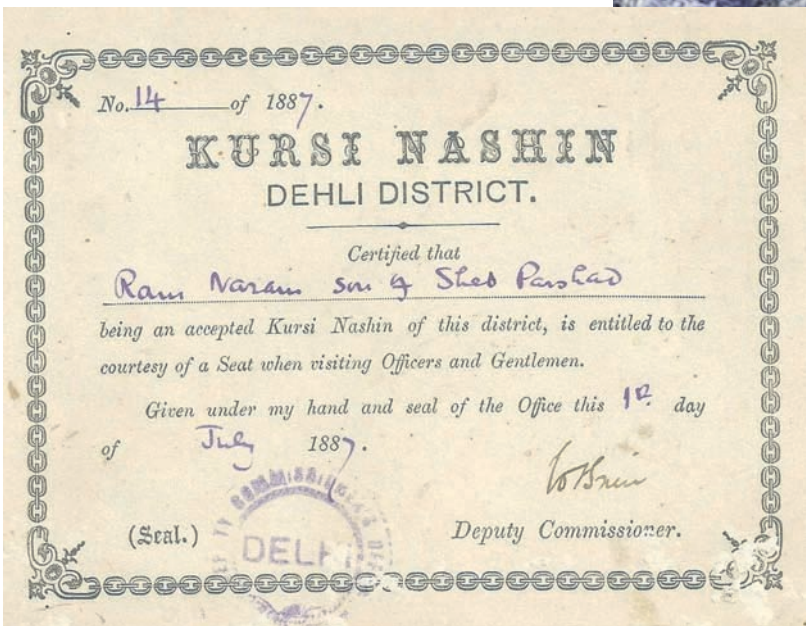 No. 14 of 1887.
KURSI NASHIN
DEHLI DISTRICT.
Certified that
Ram Narain son of Sheo Parshad
being an accepted Kursi Nashin of this district, is entitled to the
courtesy of a Seat when visiting Officers and Gentlemen.
Given under my hand and seal of the Office this 1st. day
of July 1887.
(Seal.)
DELHI
Deputy Commissioner.